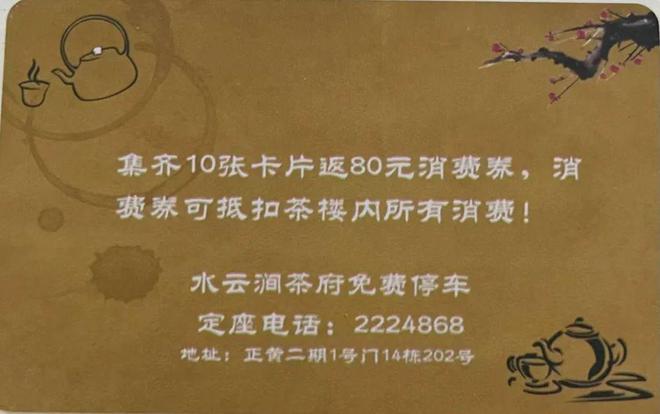 集齐10张卡片返80元消费券，消
费券可抵扣茶楼内所有消费！
水云涧茶府免费停车
定座电话：2224868
地址：正黄二期1号门14栋202号